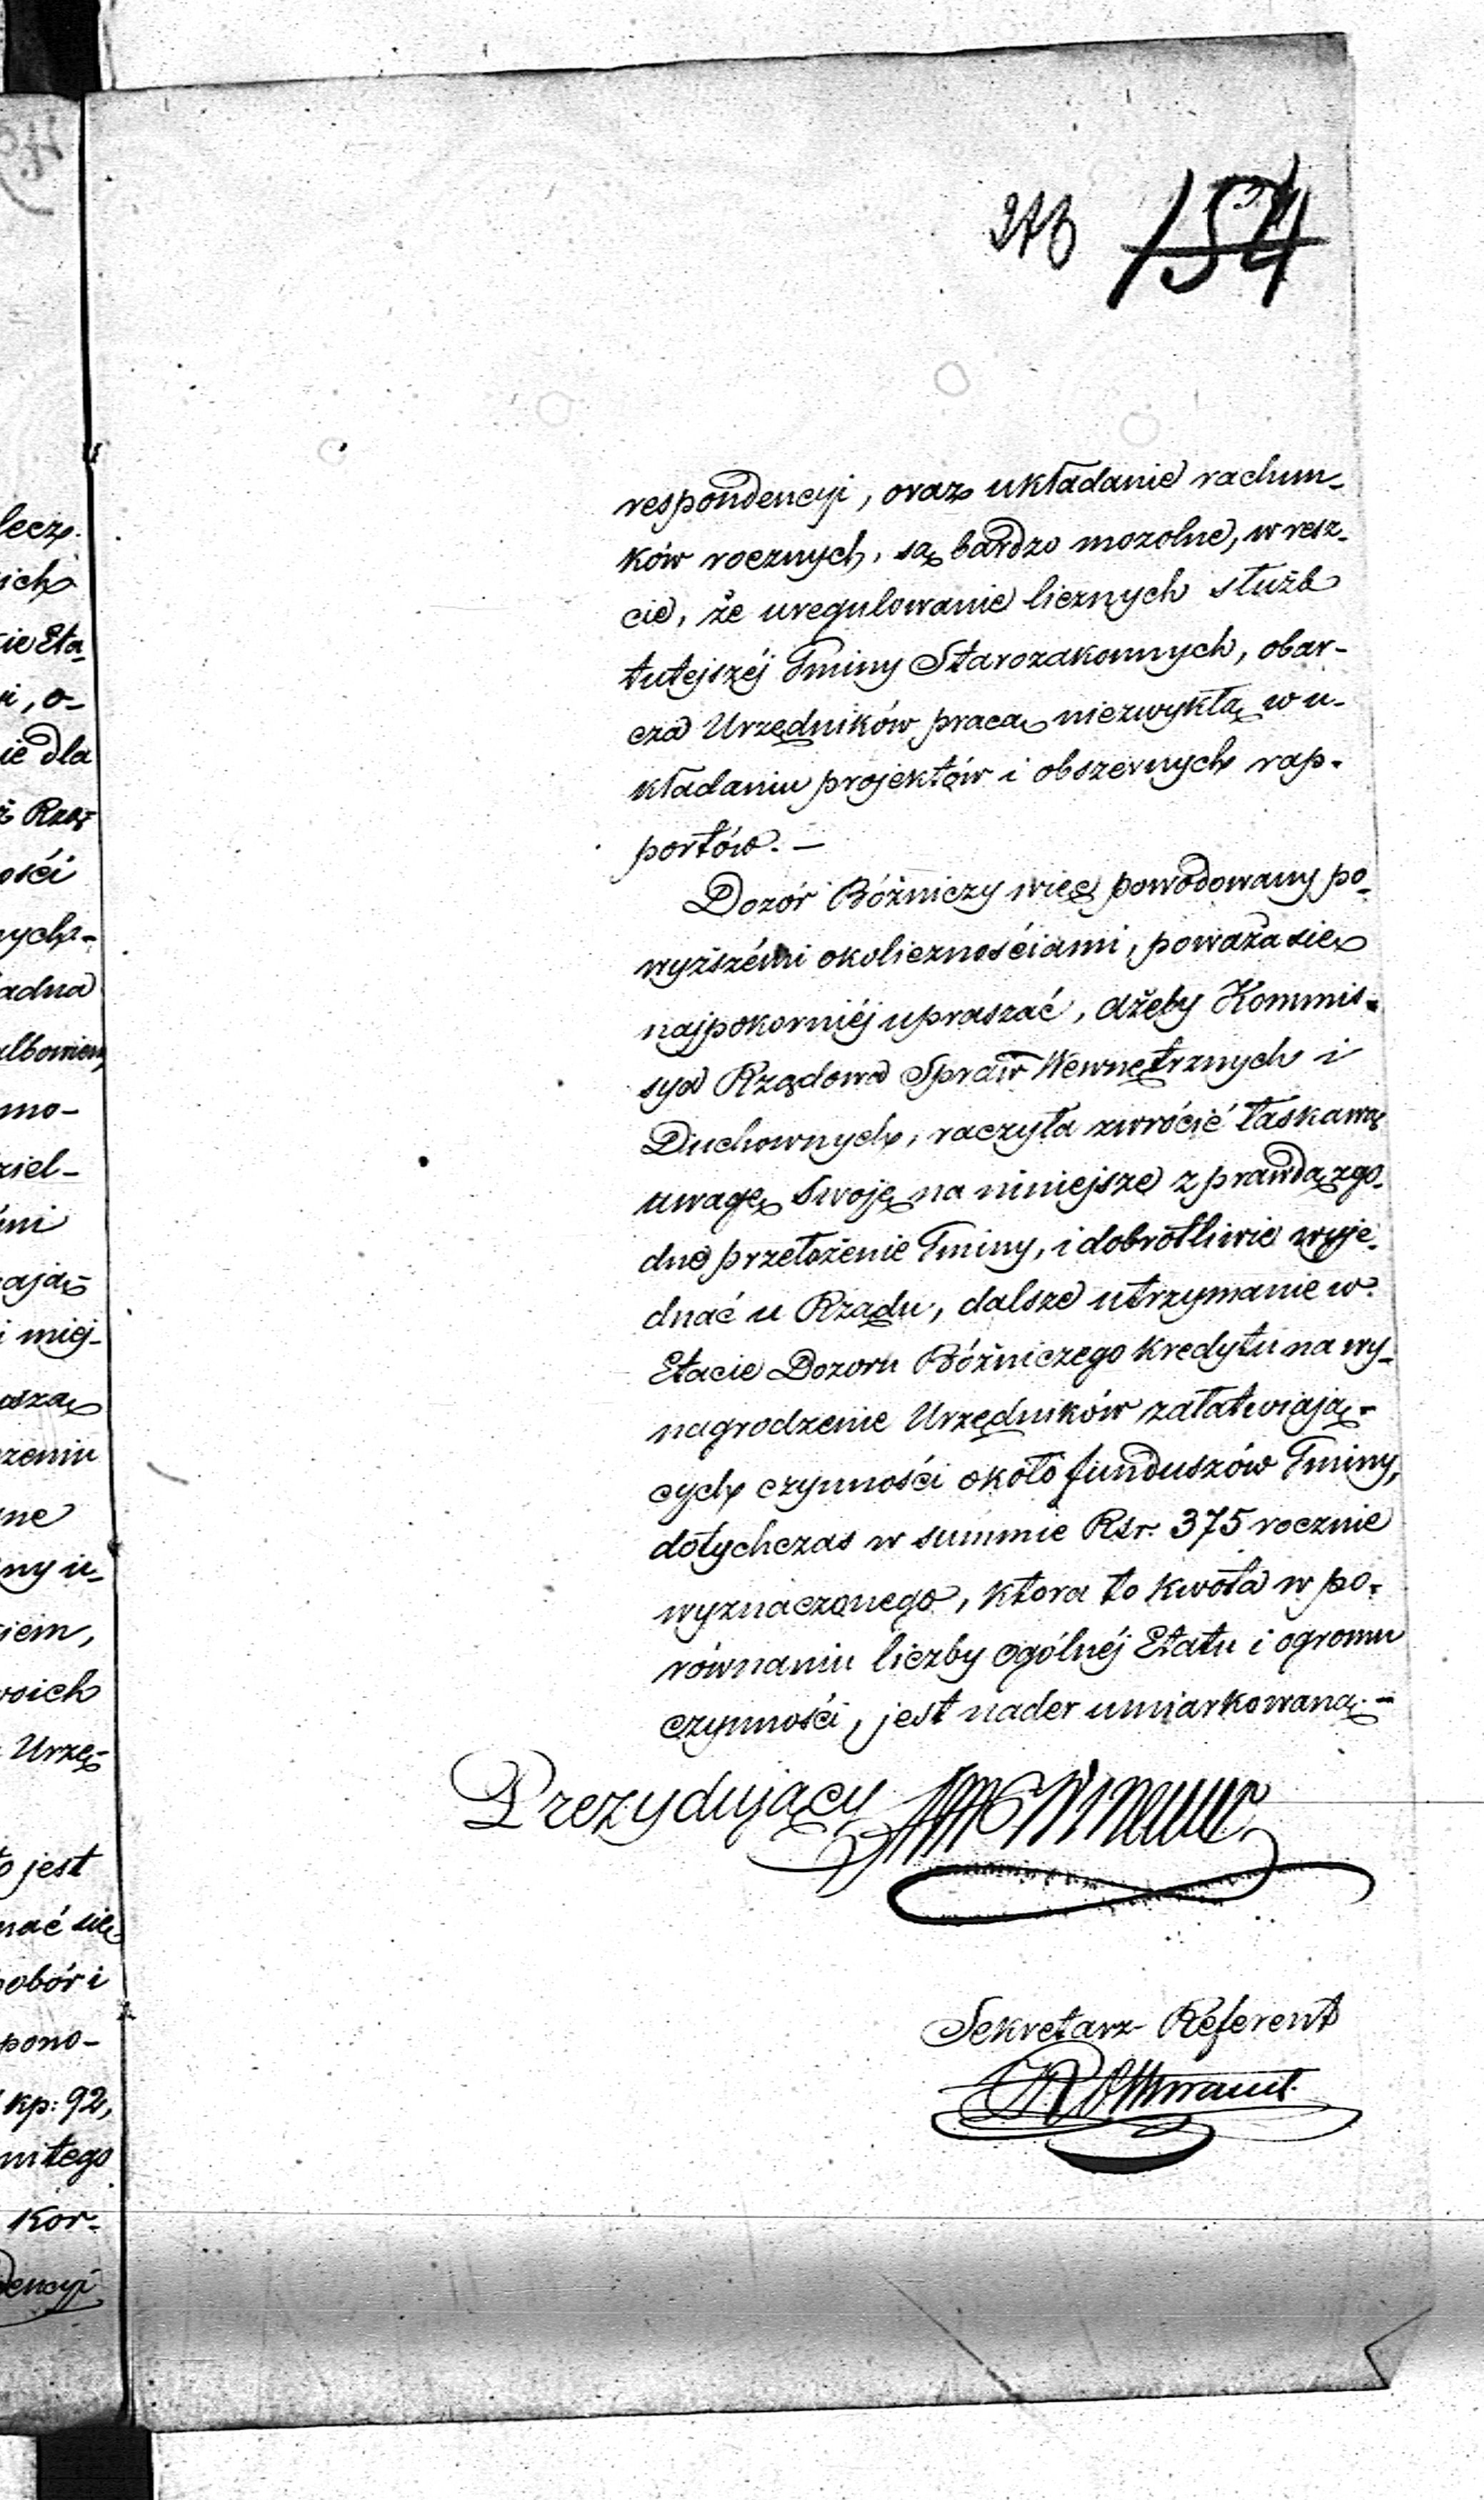 154
respondencyi, oraz układanie rachun-
ków rocznych, są bardzo mozolne, wresz-
cie, że uregulowanie licznych służb
tutejszéj Gminy Starozakonnych, obar-
cza Urzędników pracą niezwykłą w u-
kładaniu projektów i obszernych rap-
portów. —
Dozór Bóżniczy więc powodowany po-
wyższémi okolicznościami, poważa się
najpokorniéj upraszać, ażeby Kommis-
sya Rządowa Spraw Wewnętrznych i
Duchownych, raczyła zwrócić łaskawą
uwagę Swoję na niniejsze z prawdą zgo-
dne przełożenie Gminy, i dobrotliwie wyje-
dnać u Rządu, dalsze utrzymanie w
Etacie Dozoru Bóżniczego kredytu na wy-
nagrodzenie Urzędników załatwiają-
cych czynności około funduszów Gminy,
dotychczas w summie Rsr. 375 rocznie
wyznaczonego, która to kwota w po-
równaniu liczby ogólnéj Etatu i ogromu
czynności, jest nader umiarkowaną. —
Prezydujący
Sekretarz Referent
lecz
ich
ie Eta-
i, o-
ie dla
Rzą-
ości
nych-
adna
albowiem
mo-
ziel-
mi
ają-
i miej-
aszą
zeniu
ne
ny u-
iem,
woich
Urzę-
o jest
nać się
pobór i
pono-
kp: 92,
ni tego
Kor-
dencyi